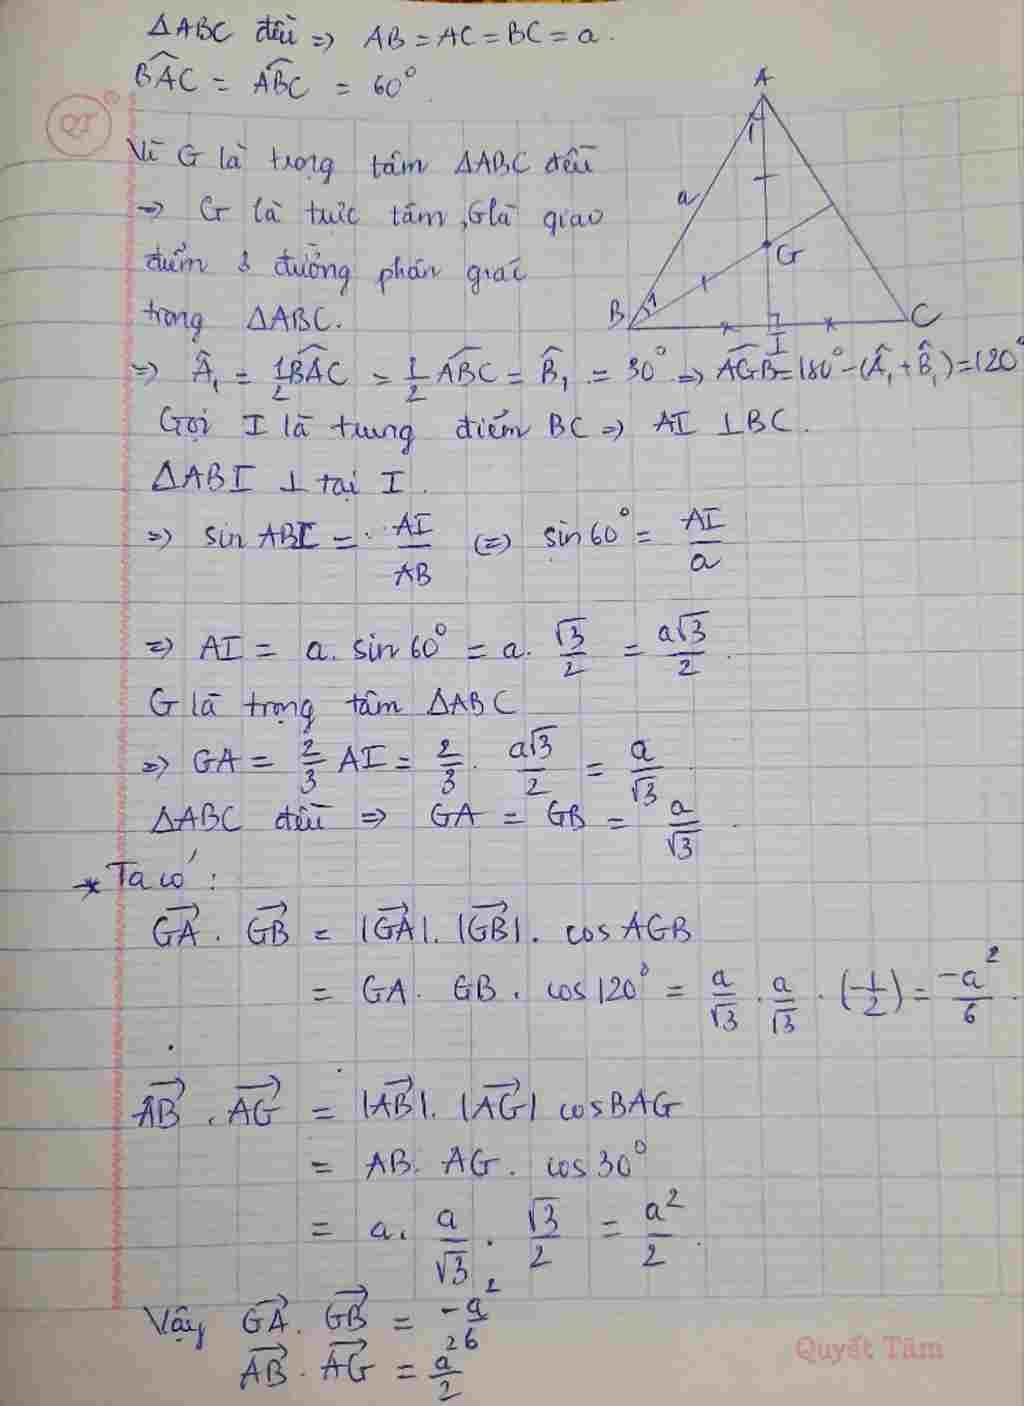 ΔABC đều => AB = AC = BC = a.
BÂC = ABC = 60°.
QT
Vì G là trọng tâm ΔABC đều
=> G là trực tâm, G là giao
điểm 3 đường phân giác
trong ΔABC.
=> Â₁ = 1/2 BAC = 1/2 ABC = B̂₁ = 30° => AGB = 180° - (Â₁ + B̂₁) = 120°
Gọi I là trung điểm BC => AI ⊥ BC.
ΔABI ⊥ tại I.
=> sin ABI = AI/AB (=) sin 60° = AI/a
=> AI = a. sin 60° = a. √3/2 = a√3/2.
G là trọng tâm ΔABC
=> GA = 2/3 AI = 2/3 . a√3/2 = a/√3.
ΔABC đều => GA = GB = a/√3.
* Ta có:
GA→ . GB→ = |GA→|. |GB→|. cos AGB
= GA. GB. cos 120° = a/√3 . a/√3 . (-1/2) = -a²/6.
AB→ . AG→ = |AB→|. |AG→| cos BAG
= AB. AG. cos 30°
= a. a/√3 . √3/2 = a²/2.
Vậy GA→. GB→ = -a²/6
AB→. AG→ = a²/2
A
1
a
G
B
1
I
C
Quyết Tâm